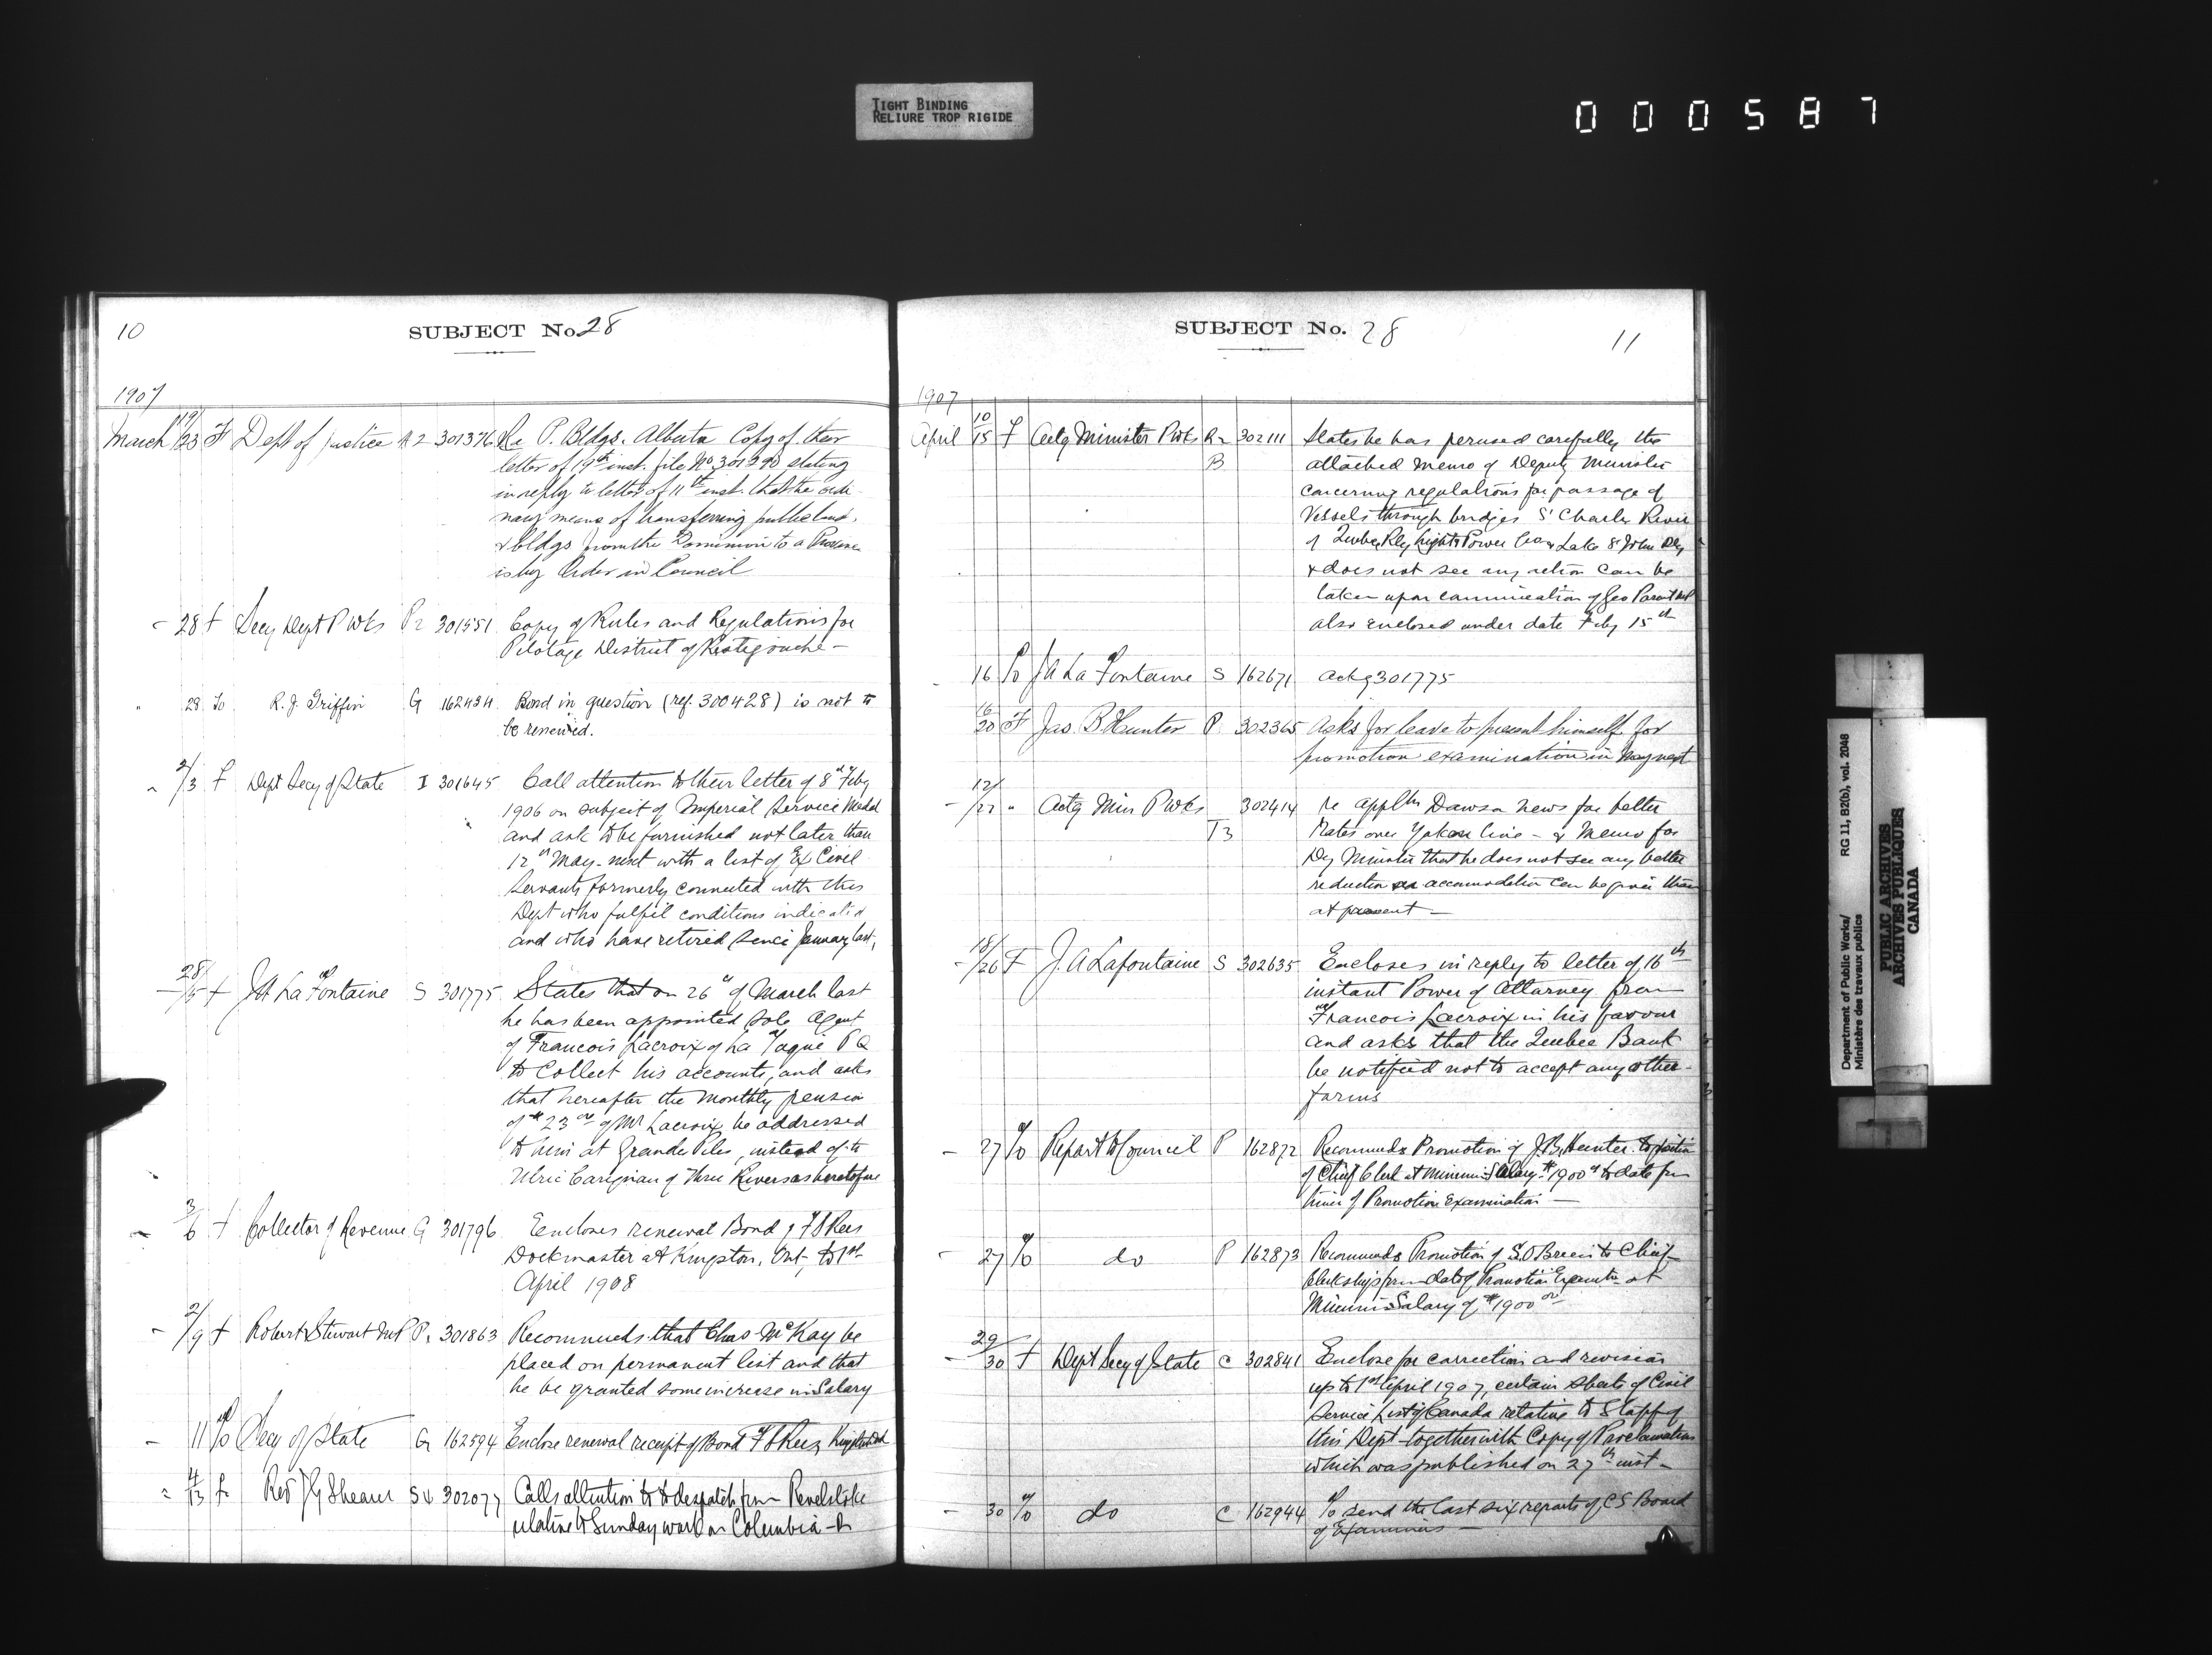 TIGHT BINDING
RELIURE TROP RIGIDE
000587
10
SUBJECT No. 28
1907
March 19/23 F Dept of Justice R2 301376 Re P. Bldgs. Alberta Copy of their
letter of 19th inst. file No 301290 stating
in reply to letter of 11th inst. that the ordi-
nary means of transferring public land,
& bldgs from the Dominion to a Province
is by Order in Council
- 28 F Secy Dept P Wks P2 301551 Copy of Rules and Regulations for
Pilotage District of Restigouche -
" 28 To R. J. Griffin G 162434 Bond in question (ref. 300428) is not to
be renewed.
2/3 F Dept Secy of State I 301645 Call attention to their letter of 8th Feby
1906 on subject of Imperial Service Medal
and ask to be furnished not later than
12th May next with a list of Ex Civil
Servants formerly connected with this
Dept who fulfil conditions indicated
and who have retired since January last,
28/5 F J A La Fontaine S 301775 States that on 26th of March last
he has been appointed sole agent
of Francois Lacroix of La Tuque P Q
to Collect his accounts, and asks
that hereafter the monthly pension
of $23 00 of Mr Lacroix be addressed
to him at Grande Piles, instead of to
Ulric Carignan of Three Rivers as heretofore
3/6 F Collector of Revenue G 301796 Encloses renewal Bond of
Dockmaster at Kingston, Ont, to 1st
April 1908
- 2/9 F Robert Stewart MP P2 301863 Recommends that Chas McKay be
placed on permanent list and that
he be granted some increase in Salary
- 11 To Secy of State G 162594 Enclose renewal receipt of Bond
4/13 F Rev J G Shearer S 302077 Calls attention to despatch from Revelstoke
relative to Sunday work on Columbia R
SUBJECT No. 28
11
1907
April 10/15 F Actg Minister P Wks R2 302111 States he has perused carefully the
B attached memo of Deputy Minister
concerning regulations for passage of
Vessels through bridges St Charles River
of Quebec Rly Light & Power Co & Lake St John Rly
& does not see any action can be
taken upon communication of Geo Parent MP
also enclosed under date Feby 15th
- 16 To J A La Fontaine S 162671 Ackg 301775
16/20 F Jas. B Hunter P. 302365 Asks for leave to present himself for
promotion examination in May next
12/22 " Actg Min P Wks 302414 re applctn Dawson News for better
T3 Rates over Yukon line - & Memo for
Dy Minister that he does not see any better
reduction or accomodation can be given than
at present -
- 18/26 F J. A Lafontaine S 302635 Encloses in reply to letter of 16th
instant Power of Attorney from
Francois Lacroix in his favour
and asks that the Quebec Bank
be notified not to accept any other
forms
- 27 To Report to Council P 162872 Recommends Promotion of J.B. Hunter to position
of Chief Clerk at minimum Salary $1900 to date from
time of Promotion Examination -
- 27 To do P 162873 Recommends Promotion of S. O'Brien to Chief
Clerkship from date of Promotion at
Minimum Salary of $1900 00
- 29/30 F Dept Secy of State C 302841 Enclose for correction and revision
up to 1st April 1907, certain sheets of Civil
Service List of Canada relative to Staff of
this Dept together with Copy of Proclamation
which was published on 27th inst -
- 30 To do C 162944 To send the last six reports of C S Board
of Examiners -
Department of Public Works/ RG 11, B2(b), vol. 2048
Ministère des travaux publics
PUBLIC ARCHIVES
ARCHIVES PUBLIQUES
CANADA